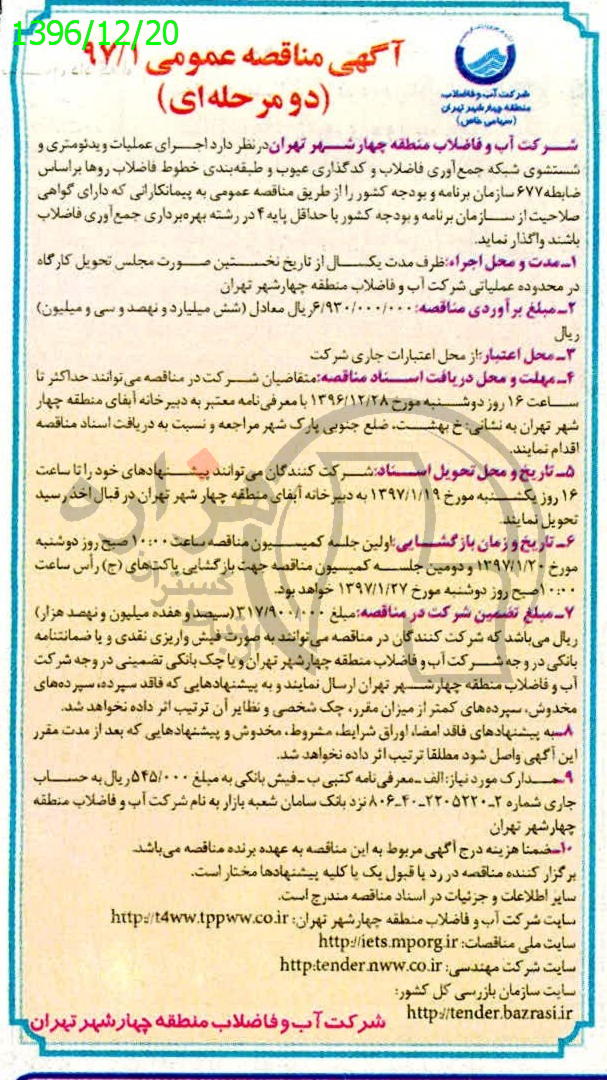 1396/12/20
آگهی مناقصه عمومی ۹۷/۱
(دو مرحله‌ای)
شرکت آب و فاضلاب
منطقه چهار شهر تهران
(سهامی خاص)
شرکت آب و فاضلاب منطقه چهار شهر تهران در نظر دارد اجرای عملیات ویدئومتری و
شستشوی شبکه جمع‌آوری فاضلاب و کدگذاری عیوب و طبقه‌بندی خطوط فاضلاب روها براساس
ضابطه ۶۷۷ سازمان برنامه و بودجه کشور را از طریق مناقصه عمومی به پیمانکارانی که دارای گواهی
صلاحیت از سازمان برنامه و بودجه کشور با حداقل پایه ۴ در رشته بهره‌برداری جمع‌آوری فاضلاب
باشند واگذار نماید.
۱ـ مدت و محل اجراء: ظرف مدت یکسال از تاریخ نخستین صورت مجلس تحویل کارگاه
در محدوده عملیاتی شرکت آب و فاضلاب منطقه چهارشهر تهران
۲ـ مبلغ برآوردی مناقصه: ۶/۹۳۰/۰۰۰/۰۰۰ریال معادل (شش میلیارد و نهصد و سی و میلیون)
ریال
۳ـ محل اعتبار: از محل اعتبارات جاری شرکت
۴ـ مهلت و محل دریافت اسناد مناقصه: متقاضیان شرکت در مناقصه می‌توانند حداکثر تا
ساعت ۱۶ روز دوشنبه مورخ ۱۳۹۶/۱۲/۲۸ با معرفی‌نامه معتبر به دبیرخانه آبفای منطقه چهار
شهر تهران به نشانی: خ بهشت، ضلع جنوبی پارک شهر مراجعه و نسبت به دریافت اسناد مناقصه
اقدام نمایند.
۵ـ تاریخ و محل تحویل اسناد: شرکت کنندگان می‌توانند پیشنهادهای خود را تا ساعت
۱۶ روز یکشنبه مورخ ۱۳۹۷/۱/۱۹ به دبیرخانه آبفای منطقه چهار شهر تهران در قبال اخذ رسید
تحویل نمایند.
۶ـ تاریخ و زمان بازگشایی: اولین جلسه کمیسیون مناقصه ساعت ۱۰:۰۰ صبح روز دوشنبه
مورخ ۱۳۹۷/۱/۲۰ و دومین جلسه کمیسیون مناقصه جهت بازگشایی پاکت‌های (ج) رأس ساعت
۱۰:۰۰صبح روز دوشنبه مورخ ۱۳۹۷/۱/۲۷ خواهد بود.
۷ـ مبلغ تضمین شرکت در مناقصه: مبلغ ۳۱۷/۹۰۰/۰۰۰(سیصد و هفده میلیون و نهصد هزار)
ریال می‌باشد که شرکت کنندگان در مناقصه می‌توانند به صورت فیش واریزی نقدی و یا ضمانتنامه
بانکی در وجه شرکت آب و فاضلاب منطقه چهارشهر تهران و یا چک بانکی تضمینی در وجه شرکت
آب و فاضلاب منطقه چهارشهر تهران ارسال نمایند و به پیشنهادهایی که فاقد سپرده، سپرده‌های
مخدوش، سپرده‌های کمتر از میزان مقرر، چک شخصی و نظایر آن ترتیب اثر داده نخواهد شد.
۸ـ به پیشنهادهای فاقد امضا، اوراق شرایط، مشروط، مخدوش و پیشنهادهایی که بعد از مدت مقرر
این آگهی واصل شود مطلقا ترتیب اثر داده نخواهد شد.
۹ـ مدارک مورد نیاز: الف ـ معرفی‌نامه کتبی ب ـ فیش بانکی به مبلغ ۵۴۵/۰۰۰ریال به حساب
جاری شماره ۲ـ۲۲۰۵۲۲۰ـ۴۰ـ۸۰۶ نزد بانک سامان شعبه بازار به نام شرکت آب و فاضلاب منطقه
چهارشهر تهران
۱۰ـ ضمنا هزینه درج آگهی مربوط به این مناقصه به عهده برنده مناقصه می‌باشد.
برگزار کننده مناقصه در رد یا قبول یک یا کلیه پیشنهادها مختار است.
سایر اطلاعات و جزئیات در اسناد مناقصه مندرج است.
سایت شرکت آب و فاضلاب منطقه چهارشهر تهران: http://t4ww.tppww.co.ir
سایت ملی مناقصات: http://iets.mporg.ir
سایت شرکت مهندسی: http:tender.nww.co.ir
سایت سازمان بازرسی کل کشور:
http://tender.bazrasi.ir
شرکت آب و فاضلاب منطقه چهارشهر تهران